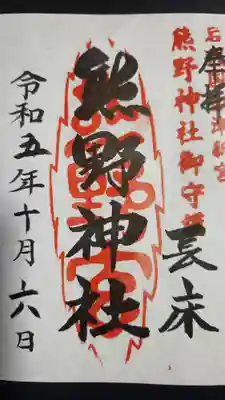 奉拝
熊野神社御守護
長床
熊野神社
令和五年十月六日